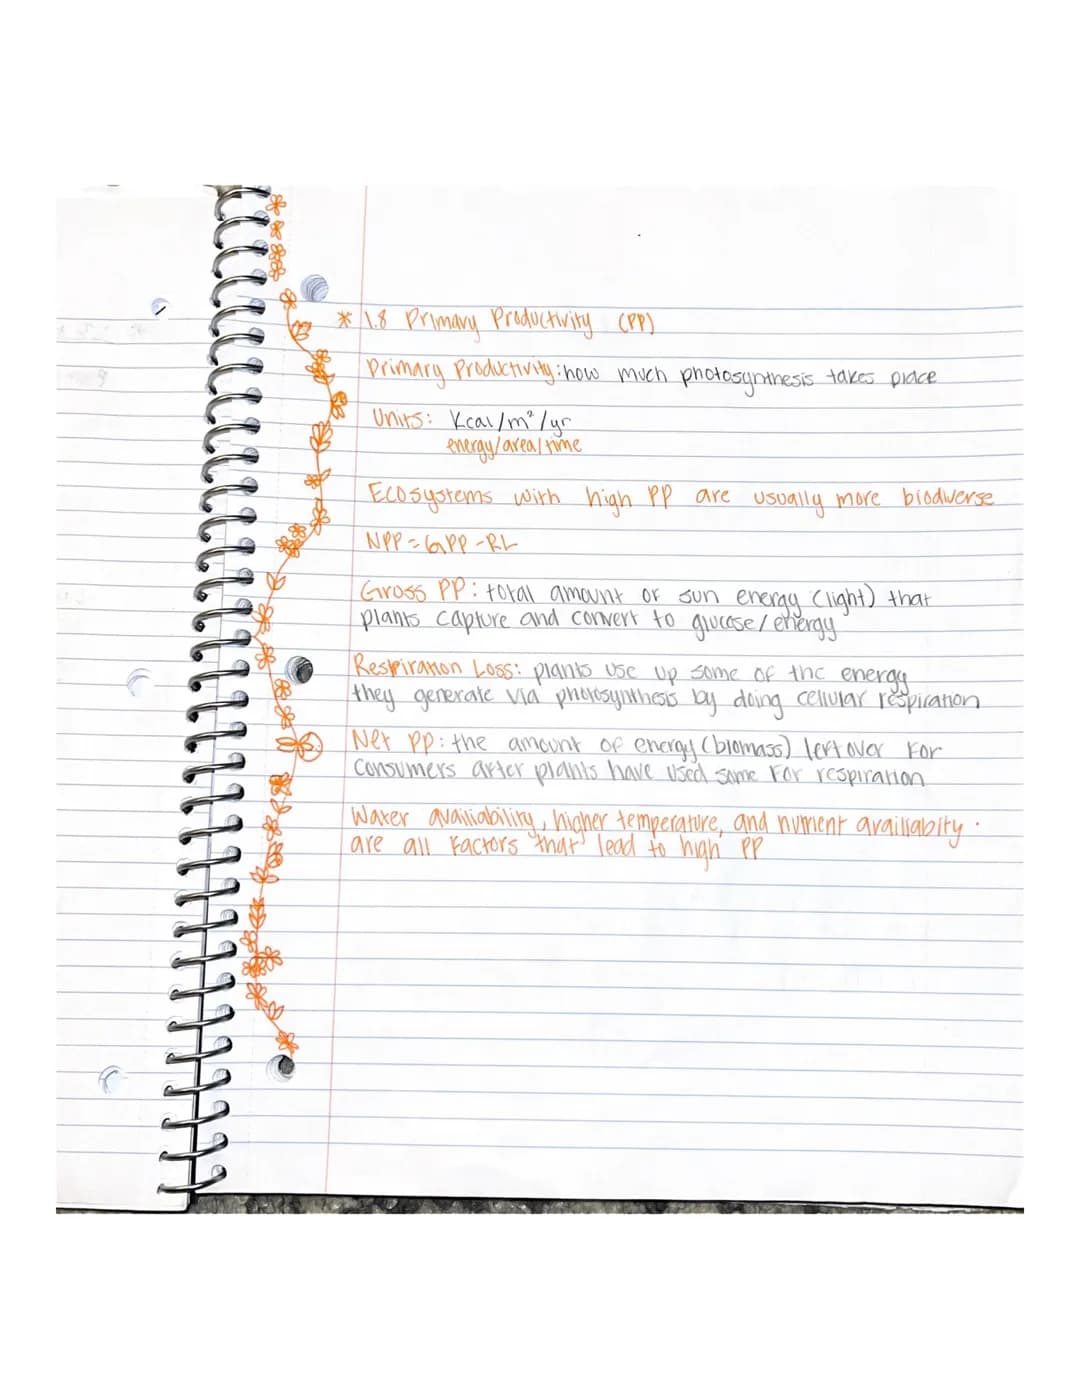 * 1.8 Primary Productivity (PP)
Primary Productivity: how much photosynthesis takes place
Units: Kcal/m²/yr
energy/area/time
Ecosystems with high PP are usually more biodiverse
NPP = GPP - RL
Gross PP: total amount of sun energy (light) that
plants capture and convert to glucose/energy
Respiration Loss: plants use up some of the energy
they generate via photosynthesis by doing cellular respiration
Net PP: the amount of energy (biomass) leftover for
consumers after plants have used some for respiration
Water availiability, higher temperature, and nutrient availlabity
are all factors that lead to high PP